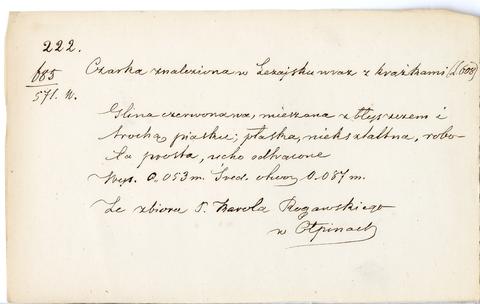 222.
685
571. W.
Czarka znaleziona w Leżajsku wraz z krążkami (L. 608)
Glina czerwonawa, mieszana z łyszczem i
trochą piasku; płaska, niekształtna, robo-
ta prosta, ucho odtrącone
Wys. 0.053 m. Śred. otworu 0.087 m.
Ze zbioru P. Karola Rogawskiego
w Ołpinach